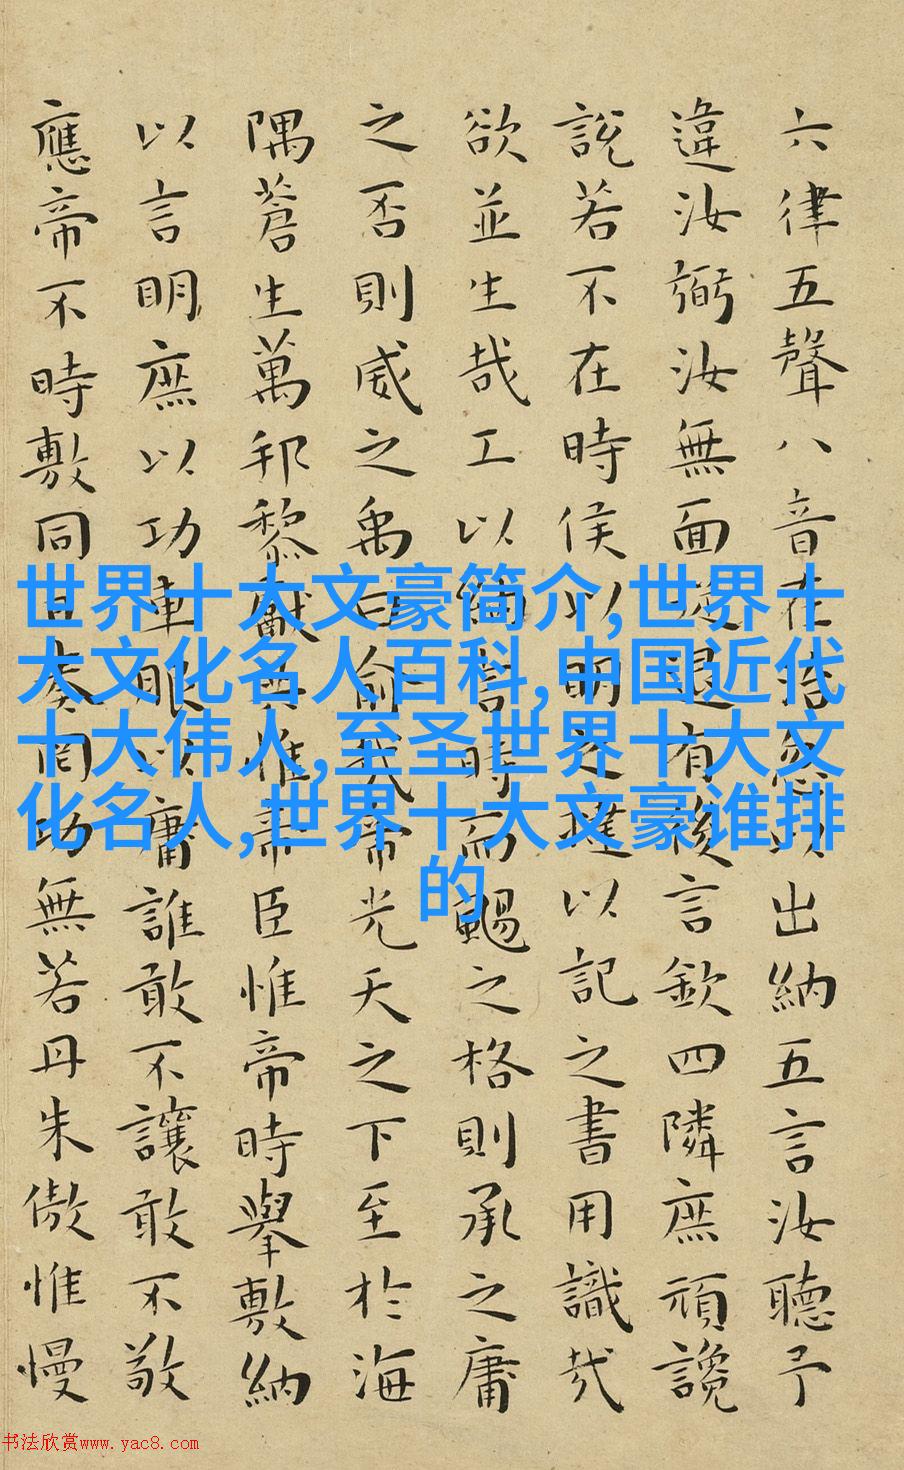 六律五聲八音在治忽以出納五言汝聽予
違汝弼汝無面從退有後言欽四隣庶頑讒
說若不在時侯以明之撻以記之書用識哉
欲並生哉工以納言時而颺之格則承之庸
之否則威之禹曰俞哉帝光天之下至於海
隅蒼生萬邦黎獻共惟帝臣惟帝時舉敷納
以言明庶以功車服以庸誰敢不讓敢不敬
應帝不時敷同日奏罔功無若丹朱傲惟慢
世界十大文豪简介,世界十
大文化名人百科,中国近代
十大伟人,至圣世界十大文
化名人,世界十大文豪谁排
的
书法欣赏www.yac8.com